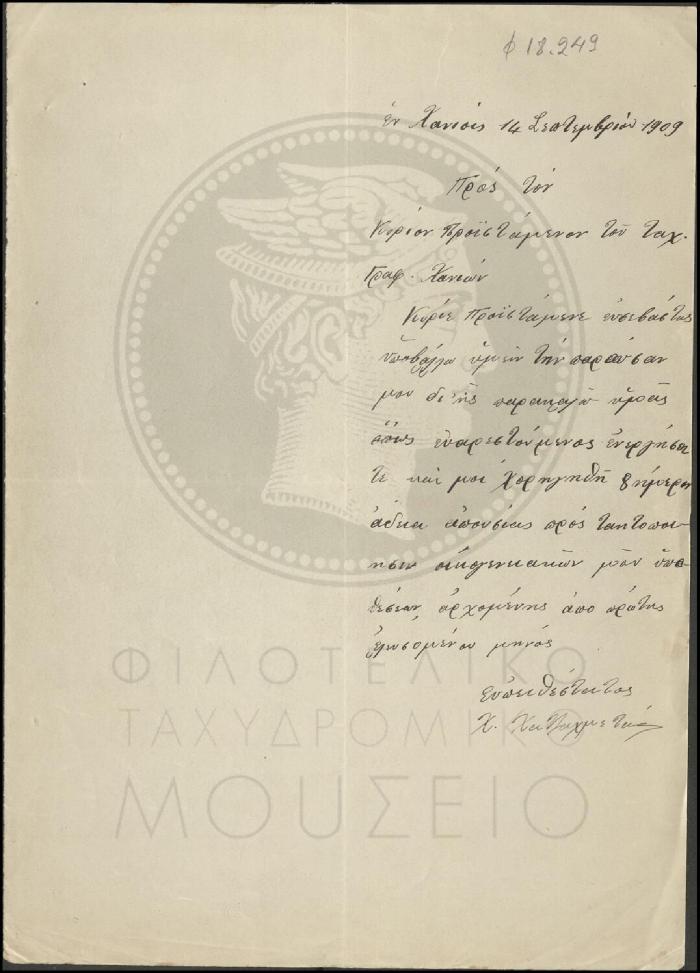 φ 18.249
ἐν Χανίοις 14 Σεπτεμβρίου 1909
Πρός τὸν
Κύριον Προϊστάμενον τοῦ Ταχ.
Γραφ. Χανίων
Κύριε Προϊστάμενε εὐσεβάστως
ὑποβάλλω ὑμῖν τὴν παροῦσαν
μου δι' ἧς παρακαλῶ ὑμᾶς
ὅπως εὐαρεστούμενος ἐνεργήση
τε καὶ μοὶ χορηγηθῆ 8ήμερος
ἄδεια ἀπουσίας πρὸς τακτοποί-
ησιν οἰκογενειακῶν μου ὑπο-
θέσεων ἀρχομένης ἀπὸ πρώτης
ἐλευσομένου μηνός
Εὐπειθέστατος
Χ.
ΦΙΛΟΤΕΛΙΚΟ
ΤΑΧΥΔΡΟΜΙΚΟ
ΜΟΥΣΕΙΟ